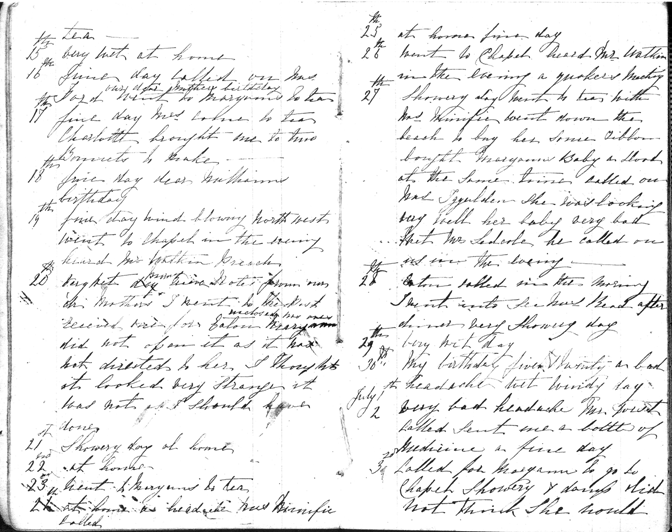 tea —
15th very wet at home
16th fine day called on Mrs
Ford went to Maryanns to tea
our dear mothers birthday
17th fine day Mrs came to tea
Charlotte brought me to two
Bonnets to make —
18th fine day dear Williams
birthday
19th fine day wind blowing north west
went to Chapel in the evening
heard Mr Watkin Preach
20th
mother I went to the Post
received one for Eaton Maryann
inclosed no one
did not open it as it was
not directed to her I thought
it looked very strange it
was not as I should have
done
21st Showery day at home
22nd at home
23rd went to Maryanns to tea
at home headache Mrs Minifie
called
25th at home fine day
26th went to Chapel heard Mr Watkin
in the evening a quakers Meeting
27th Showery day went to tea with
Mrs Minifie went down the
beach to buy her some ribbon
bought Maryanns Baby a Hood
at the same time called on
Mrs she was looking
very well her baby very bad
met Mr he called on
us in the evening —
28th Eaton called in the morning
I went into see Mrs Head after
dinner very Showery day
29th very wet day
30th My birthday five & twenty a bad
headache wet windy day
July 1st
2 very bad headache Mr
called sent me a bottle of
Medicine a fine day
3rd Called for Maryann to go to
Chapel Showery & damp did
not think she would